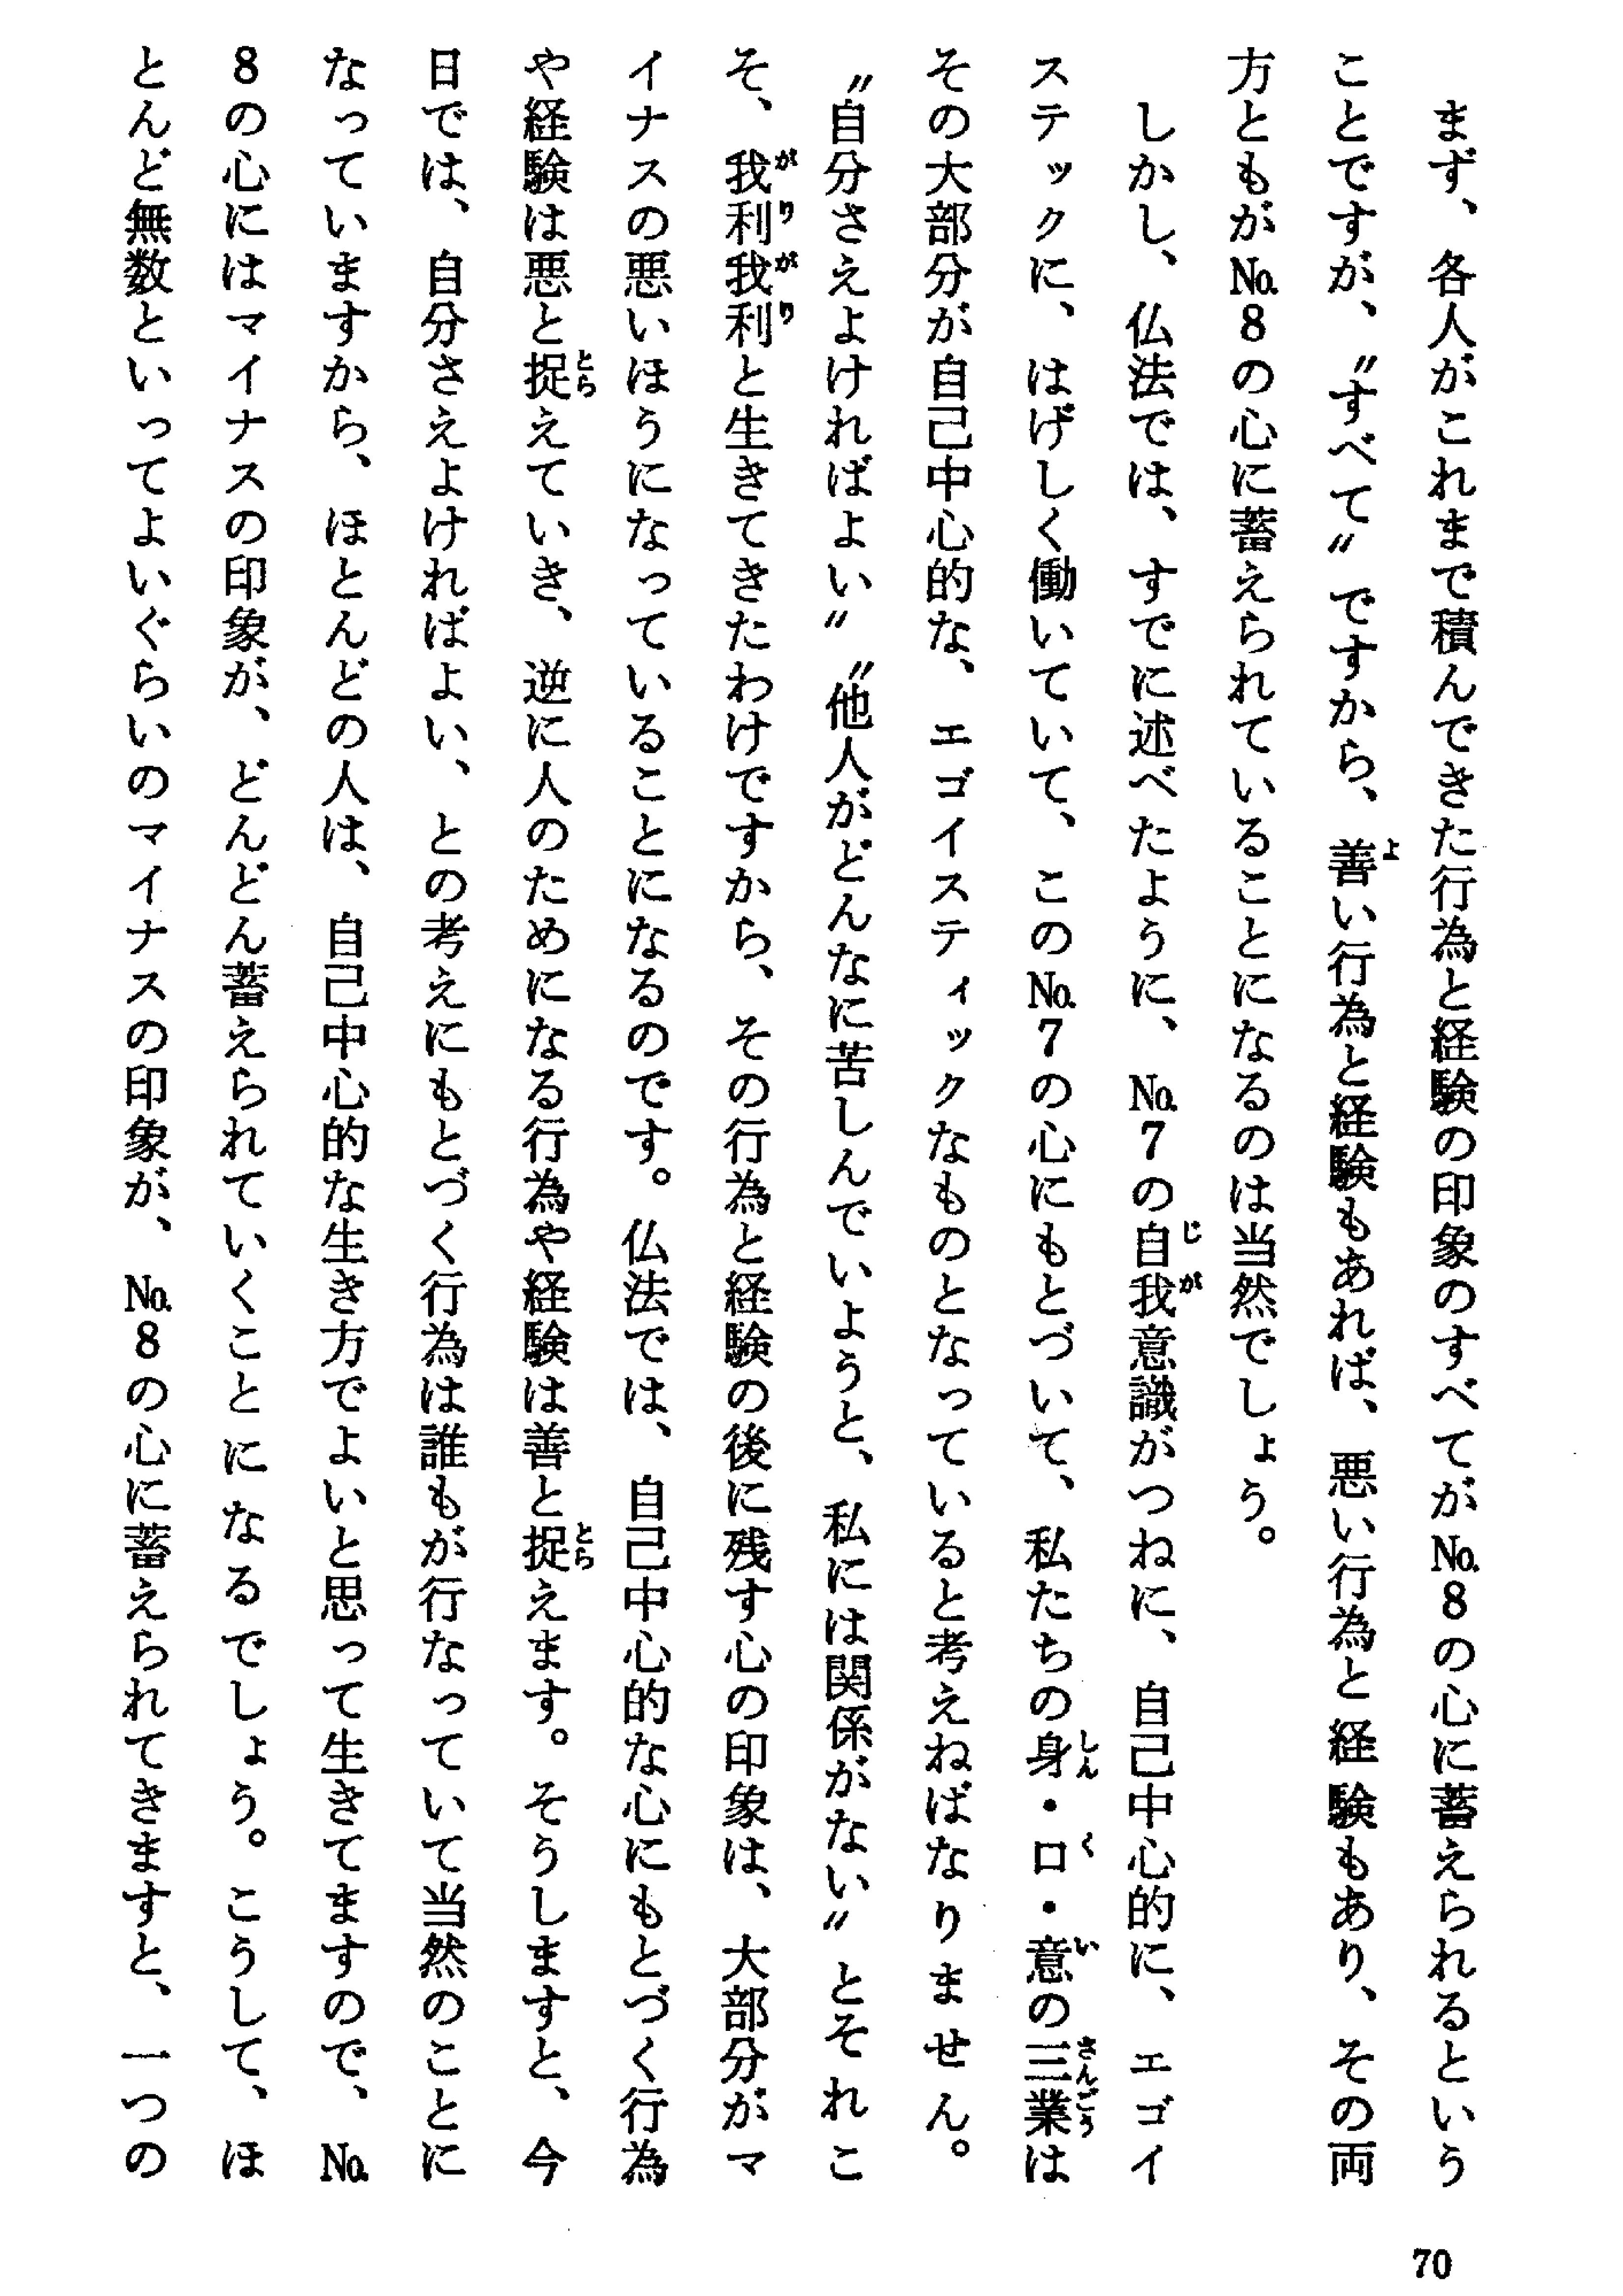 まず、各人がこれまで積んできた行為と経験の印象のすべてが№8の心に蓄えられるという
ことですが、〝すべて〟ですから、善い行為と経験もあれば、悪い行為と経験もあり、その両
方ともが№8の心に蓄えられていることになるのは当然でしょう。
しかし、仏法では、すでに述べたように、№7の自我意識がつねに、自己中心的に、エゴイ
ステックに、はげしく働いていて、この№7の心にもとづいて、私たちの身・口・意の三業は
その大部分が自己中心的な、エゴイスティックなものとなっていると考えねばなりません。
〝自分さえよければよい〟〝他人がどんなに苦しんでいようと、私には関係がない〟とそれこ
そ、我利我利と生きてきたわけですから、その行為と経験の後に残す心の印象は、大部分がマ
イナスの悪いほうになっていることになるのです。仏法では、自己中心的な心にもとづく行為
や経験は悪と捉えていき、逆に人のためになる行為や経験は善と捉えます。そうしますと、今
日では、自分さえよければよい、との考えにもとづく行為は誰もが行なっていて当然のことに
なっていますから、ほとんどの人は、自己中心的な生き方でよいと思って生きてますので、№
8の心にはマイナスの印象が、どんどん蓄えられていくことになるでしょう。こうして、ほ
とんど無数といってよいぐらいのマイナスの印象が、№8の心に蓄えられてきますと、一つの
70